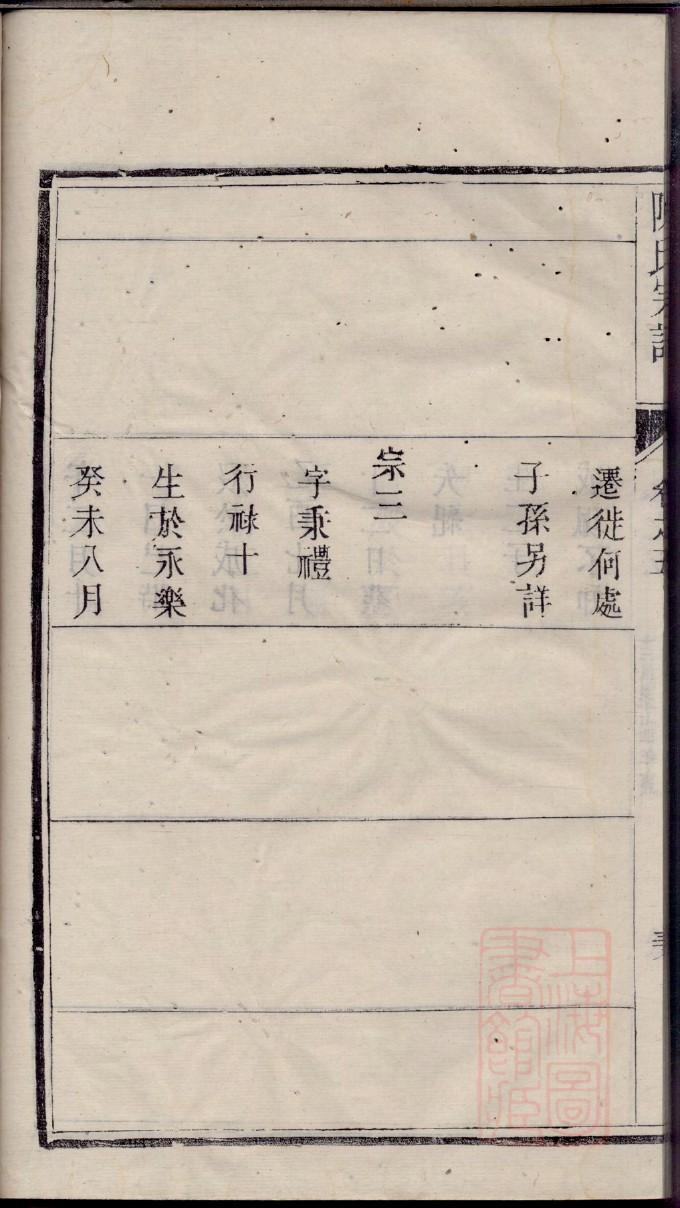 陳氏宗譜
卷之五
遷徙何處
子孫另詳
宗三
字秉禮
行祿十
生於永樂
癸未八月
上海圖
書館藏